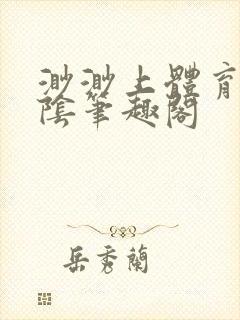 渺渺上體育
陰筆趣閣
岳秀蘭